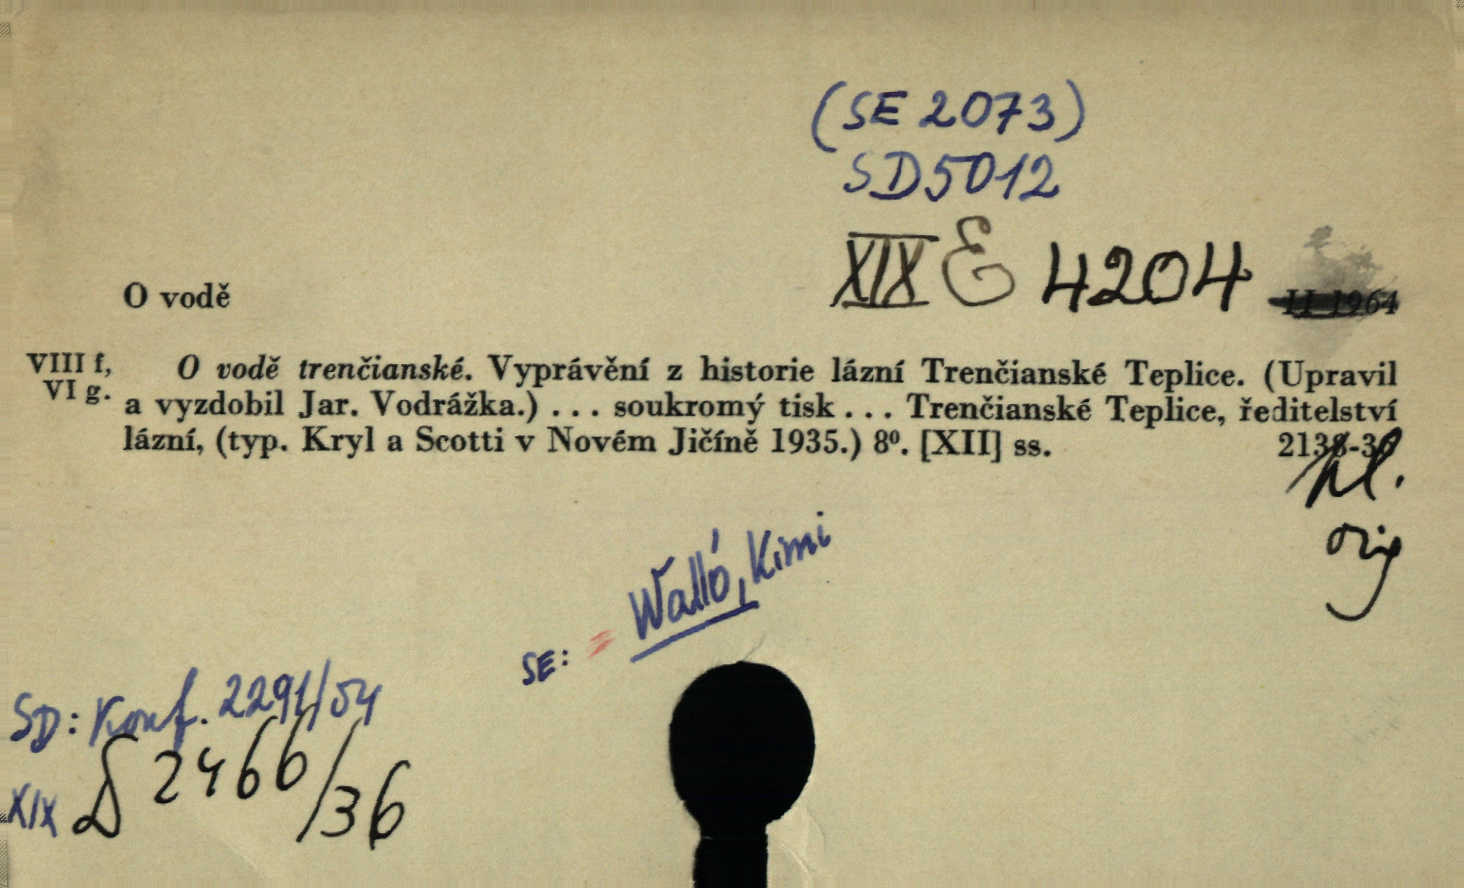 (SE 2073)
SD 5012
XIX E 4204
II 1964
O vodě
VIII f,
VI g.
O vodě trenčianské. Vyprávění z historie lázní Trenčianské Teplice. (Upravil
a vyzdobil Jar. Vodrážka.) ... soukromý tisk ... Trenčianské Teplice, ředitelství
lázní, (typ. Kryl a Scotti v Novém Jičíně 1935.) 8º. [XII] ss. 2138-36
pl.
orig
SE: = Walló, Kimi
SD: Konf. 2291/54
XIX D 2466/36